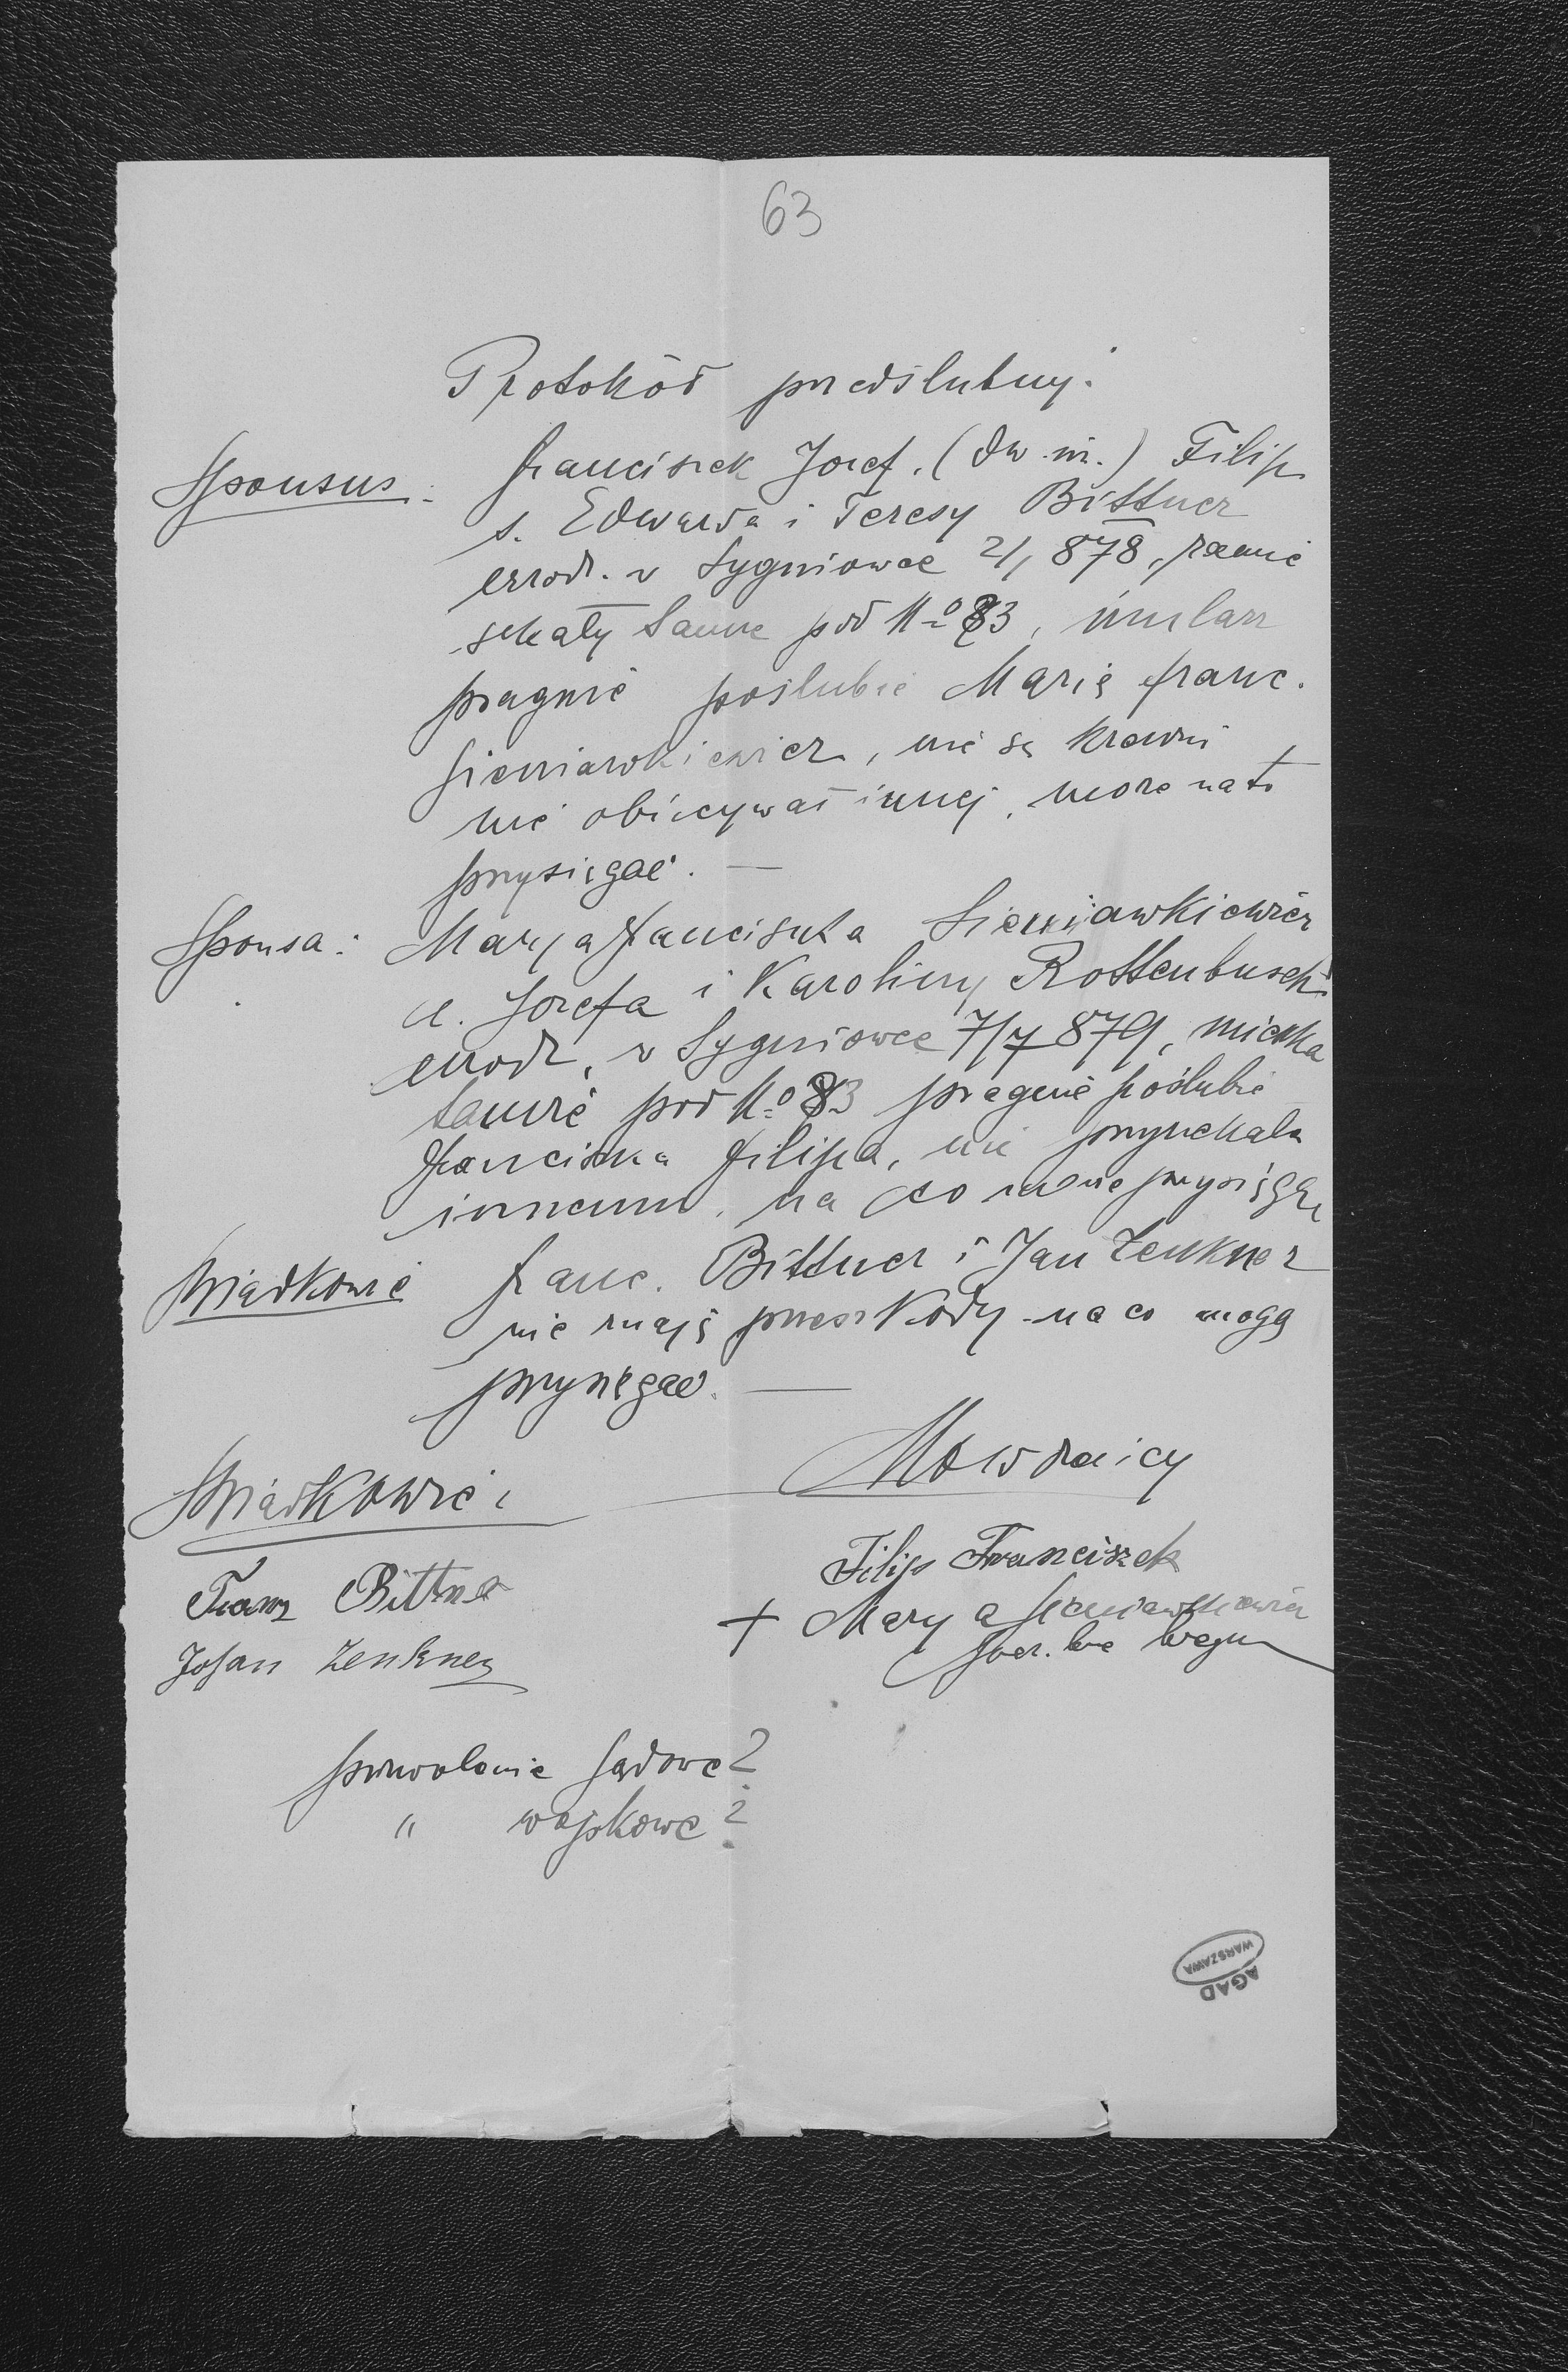 63
Protokół przedślubny.
Sponsus: Franciszek Józef. (dw. im.) Filip
s. Edwarda i Teresy Bittner
urodz. w Sygniowce 878, zamie
szkały tamże pod No 83, murarz
pragnie poślubić Maryę Franc.
Sieniawkiewicz, nie są krewni
nie obiecywał innej, może na to
przysięgać. —
Sponsa: Marya Franciszka Sieniawkiewicz
c. Józefa i Karoliny Rottenbusch
urodz. w Sygniowce 7/7 879, mieszka
tamże pod No 83 pragnie poślubić
Franciszka Filipa, nie przyrzekała
innemu, na co może przysięgą
Świadkowie Franc. Bittner i Jan Zenkner
nie mają przeszkody na co mogą
przysięgać. —
Świadkowie: Nowożeńcy
Franz Bittner Filip Franciszek
Johan Zenkner + Marya Sieniawkiewicz
pozwolenie sądowe?
" wojskowe?
AGAD
WARSZAWA